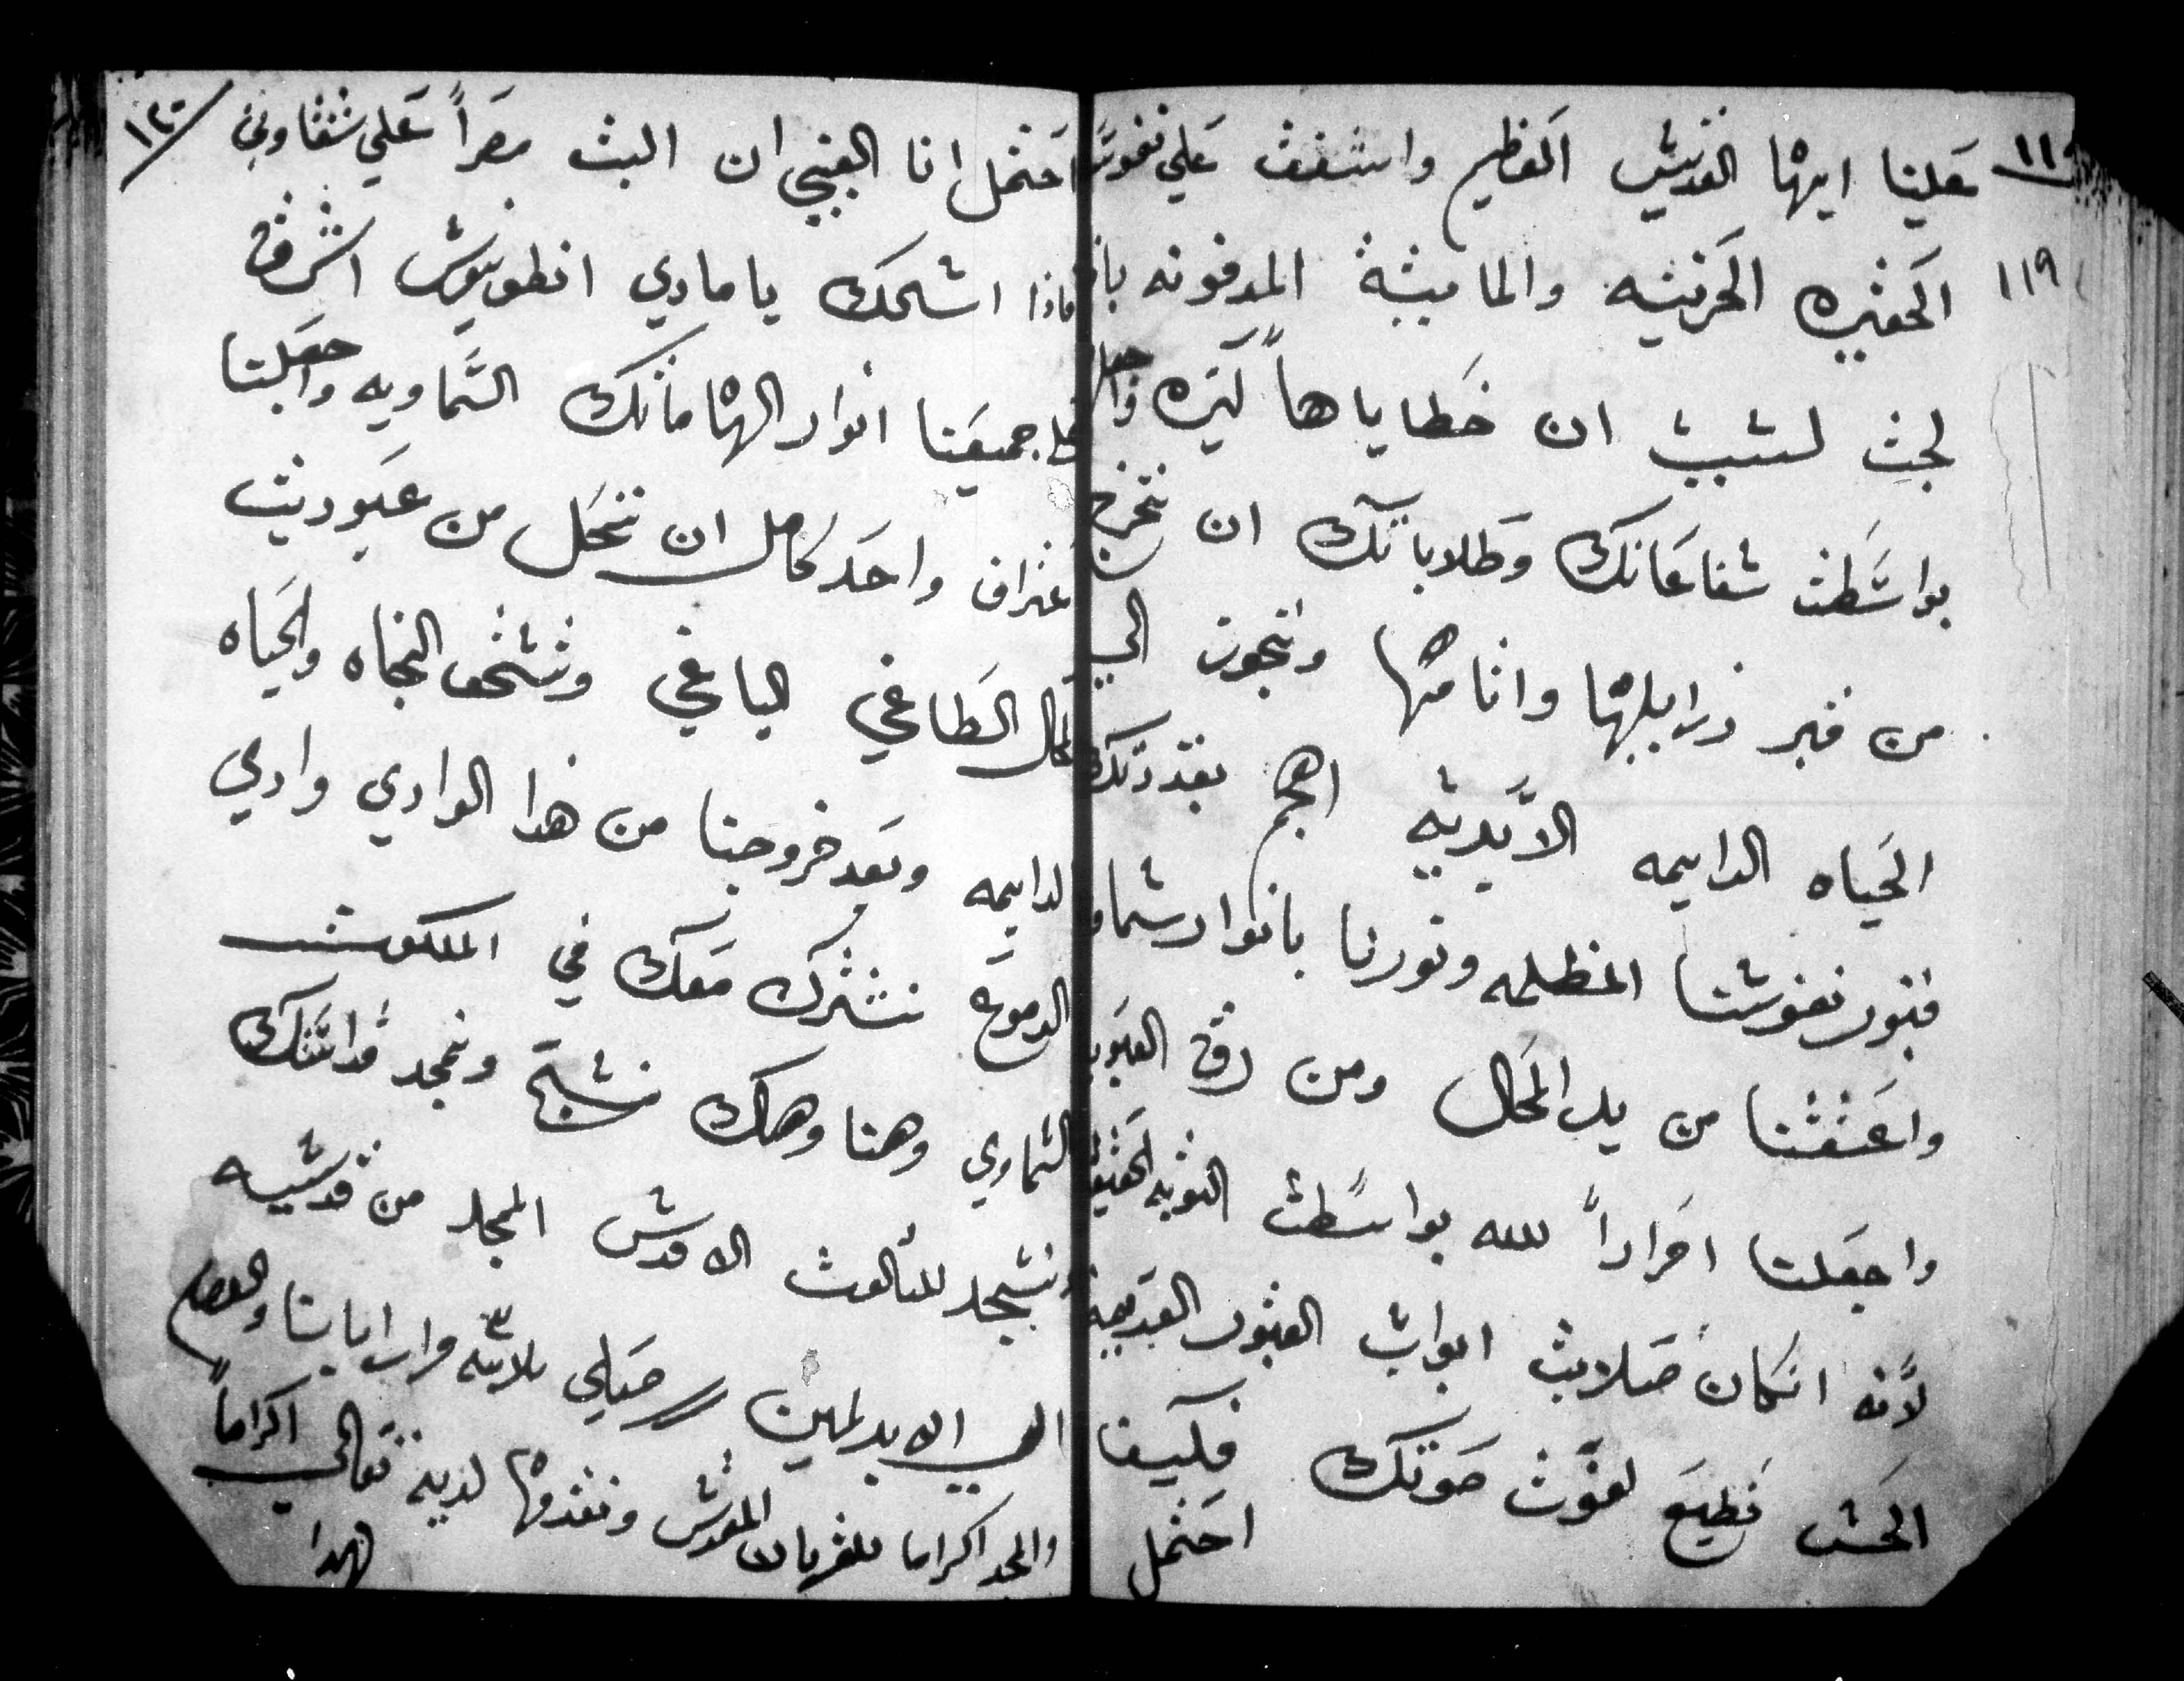 ١١
علينا ايها القديس العظيم واشفق علي نفوس
١١٩
الحقيره الحزينه والمايته المدفونه
لجت لسبب ان خطاياها كتره واجعل
بواسطت شفاعاتك وطلاباتك ان تخرج
من قبر رزايلها واتامها وتجوز الي
الحياه الدايمه الابديه اهجم بعد دلك
فتور نفوسنا المظلمه ونورنا بانوار سماو
واعتقنا من يد المحال ومن رق العبود
واجعلنا احراراً لله بواسطت التوبه الحقيقيه
لانه انكان صلابت ابواب القبور القديمه
الحس فطيع لقوت صوتك فكيف
احتمل
١٢٠
احتمل انا الغبي ان البت مصراً علي شقاوتي
فادا اسالك يا مادي انطونيوس اشرق
علي جميعنا انوار الهاماتك السماويه واجعلنا
اعتراف واحد كامل ان ننحل من عبوديت
المحال الطاغي الباغي ونستحق النجاه والحياه
الدايمه وبعد خروجنا من هدا الوادي وادي
الدموع نشترك معك في الملكوت
السماوي وهنا وهناك نسبح ونمجد قداستك
ونسجد للتالوت الاقدس الممجد من قديسيه
الي ابد الابدين // صلي تلاته ٣ مرار ابانا والسلام
والمجد اكراما للقربان المقدس ونقدمها لديه تعالي اكراماً
لهدا